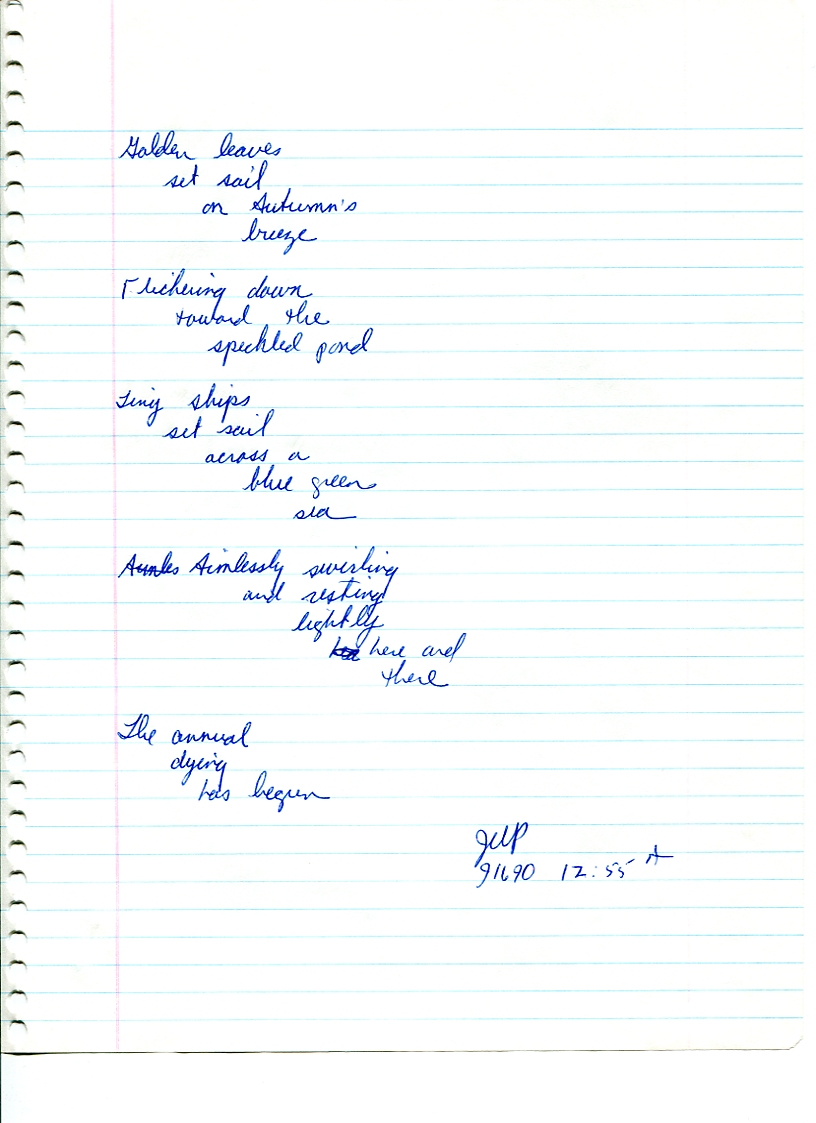 Golden leaves
set sail
on Autumn's
breeze
Flickering down
toward the
speckled pond
Tiny ships
set sail
across a
blue green
sea
Aimlessly swirling
and resting
lightly
here and
there
The annual
dying
has begun
91690 12:55 A